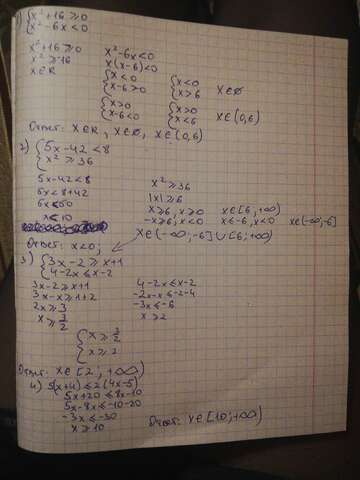 1) { x² + 16 ≥ 0
{ x² - 6x < 0
x² + 16 ≥ 0
x² ≥ 16
x ∈ R
x² - 6x < 0
x(x-6) < 0
{ x < 0
{ x - 6 > 0
{ x < 0
{ x > 6
x ∈ ∅
{ x > 0
{ x - 6 < 0
{ x > 0
{ x < 6
x ∈ (0,6)
Ответ: x ∈ R, x ∈ ∅, x ∈ (0,6)
2) { 5x - 42 < 8
{ x² ≥ 36
5x - 42 < 8
6x < 8 + 42
6x < 50
x ≤ 10
x² ≥ 36
|x| ≥ 6
x ≥ 6, x ≥ 0 x ∈ [6, +∞)
-x ≥ 6, x < 0 x ≤ -6, x < 0 x ∈ (-∞; -6]
x ∈ (-∞; -6] ∪ [6; +∞)
Ответ: x < 0;
3) { 3x - 2 ≥ x + 1
{ 4 - 2x ≤ x - 2
3x - 2 ≥ x + 1
3x - x ≥ 1 + 2
2x ≥ 3
x ≥ 3/2
4 - 2x ≤ x - 2
-2x - x ≤ -2 - 4
-3x ≤ -6
x ≥ 2
{ x ≥ 3/2
{ x ≥ 2
Ответ: x ∈ [2; +∞)
4) 5(x+4) ≤ 2(4x-5)
5x + 20 ≤ 8x - 10
5x - 8x ≤ -10 - 20
-3x ≤ -30
x ≥ 10
Ответ: x ∈ [10; +∞)